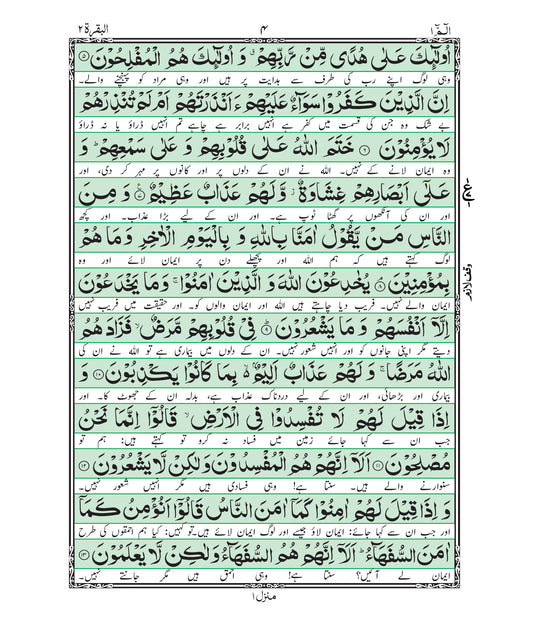 الٓمّٓ ۱ ۴ البقرة ۲
اُولٰٓئِكَ عَلٰى هُدًى مِّنْ رَّبِّهِمْ ۗ وَ اُولٰٓئِكَ هُمُ الْمُفْلِحُوْنَ ۵
وہی لوگ اپنے رب کی طرف سے ہدایت پر ہیں اور وہی مراد کو پہنچنے والے۔
اِنَّ الَّذِيْنَ كَفَرُوْا سَوَآءٌ عَلَيْهِمْ ءَاَنْذَرْتَهُمْ اَمْ لَمْ تُنْذِرْهُمْ
بے شک وہ جن کی قسمت میں کفر ہے انہیں برابر ہے چاہے تم انہیں ڈراؤ یا نہ ڈراؤ
لَا يُؤْمِنُوْنَ ۶ خَتَمَ اللّٰهُ عَلٰى قُلُوْبِهِمْ وَ عَلٰى سَمْعِهِمْ ؕ وَ
وہ ایمان لانے کے نہیں۔ اللہ نے ان کے دلوں پر اور کانوں پر مہر کر دی، اور
عَلٰٓى اَبْصَارِهِمْ غِشَاوَةٌ ؗ وَّ لَهُمْ عَذَابٌ عَظِيْمٌ ۷ وَ مِنَ
اور ان کی آنکھوں پر گھٹا ٹوپ ہے۔ اور ان کے لیے بڑا عذاب۔ اور کچھ
النَّاسِ مَنْ يَّقُوْلُ اٰمَنَّا بِاللّٰهِ وَ بِالْيَوْمِ الْاٰخِرِ وَ مَا هُمْ
لوگ کہتے ہیں کہ ہم اللہ اور پچھلے دن پر ایمان لائے اور وہ
وقف لازم
بِمُؤْمِنِيْنَ ۘ ۸ يُخٰدِعُوْنَ اللّٰهَ وَ الَّذِيْنَ اٰمَنُوْا ۚ وَ مَا يَخْدَعُوْنَ
ایمان والے نہیں۔ فریب دیا چاہتے ہیں اللہ اور ایمان والوں کو۔ اور حقیقت میں فریب نہیں
اِلَّآ اَنْفُسَهُمْ وَ مَا يَشْعُرُوْنَ ؕ ۹ فِيْ قُلُوْبِهِمْ مَّرَضٌ ۙ فَزَادَهُمُ
دیتے مگر اپنی جانوں کو اور انہیں شعور نہیں۔ ان کے دلوں میں بیماری ہے تو اللہ نے ان کی
اللّٰهُ مَرَضًا ۚ وَ لَهُمْ عَذَابٌ اَلِيْمٌۢ ۙ بِمَا كَانُوْا يَكْذِبُوْنَ ۱۰ وَ
بیماری اور بڑھائی، اور ان کے لیے دردناک عذاب ہے، بدلہ ان کے جھوٹ کا۔ اور
اِذَا قِيْلَ لَهُمْ لَا تُفْسِدُوْا فِي الْاَرْضِ ۙ قَالُوْٓا اِنَّمَا نَحْنُ
جب ان سے کہا جائے زمین میں فساد نہ کرو تو کہتے ہیں: ہم تو
مُصْلِحُوْنَ ۱۱ اَلَآ اِنَّهُمْ هُمُ الْمُفْسِدُوْنَ وَ لٰكِنْ لَّا يَشْعُرُوْنَ ۱۲
سنوارنے والے ہیں۔ سنتا ہے! وہی فسادی ہیں مگر انہیں شعور نہیں۔
وَ اِذَا قِيْلَ لَهُمْ اٰمِنُوْا كَمَآ اٰمَنَ النَّاسُ قَالُوْٓا اَنُؤْمِنُ كَمَآ
اور جب ان سے کہا جائے: ایمان لاؤ جیسے اور لوگ ایمان لائے ہیں۔ تو کہیں: کیا ہم احمقوں کی طرح
اٰمَنَ السُّفَهَآءُ ؕ اَلَآ اِنَّهُمْ هُمُ السُّفَهَآءُ وَ لٰكِنْ لَّا يَعْلَمُوْنَ ۱۳
ایمان لے آئیں؟ سنتا ہے! وہی احمق ہیں مگر جانتے نہیں۔
منزل ۱